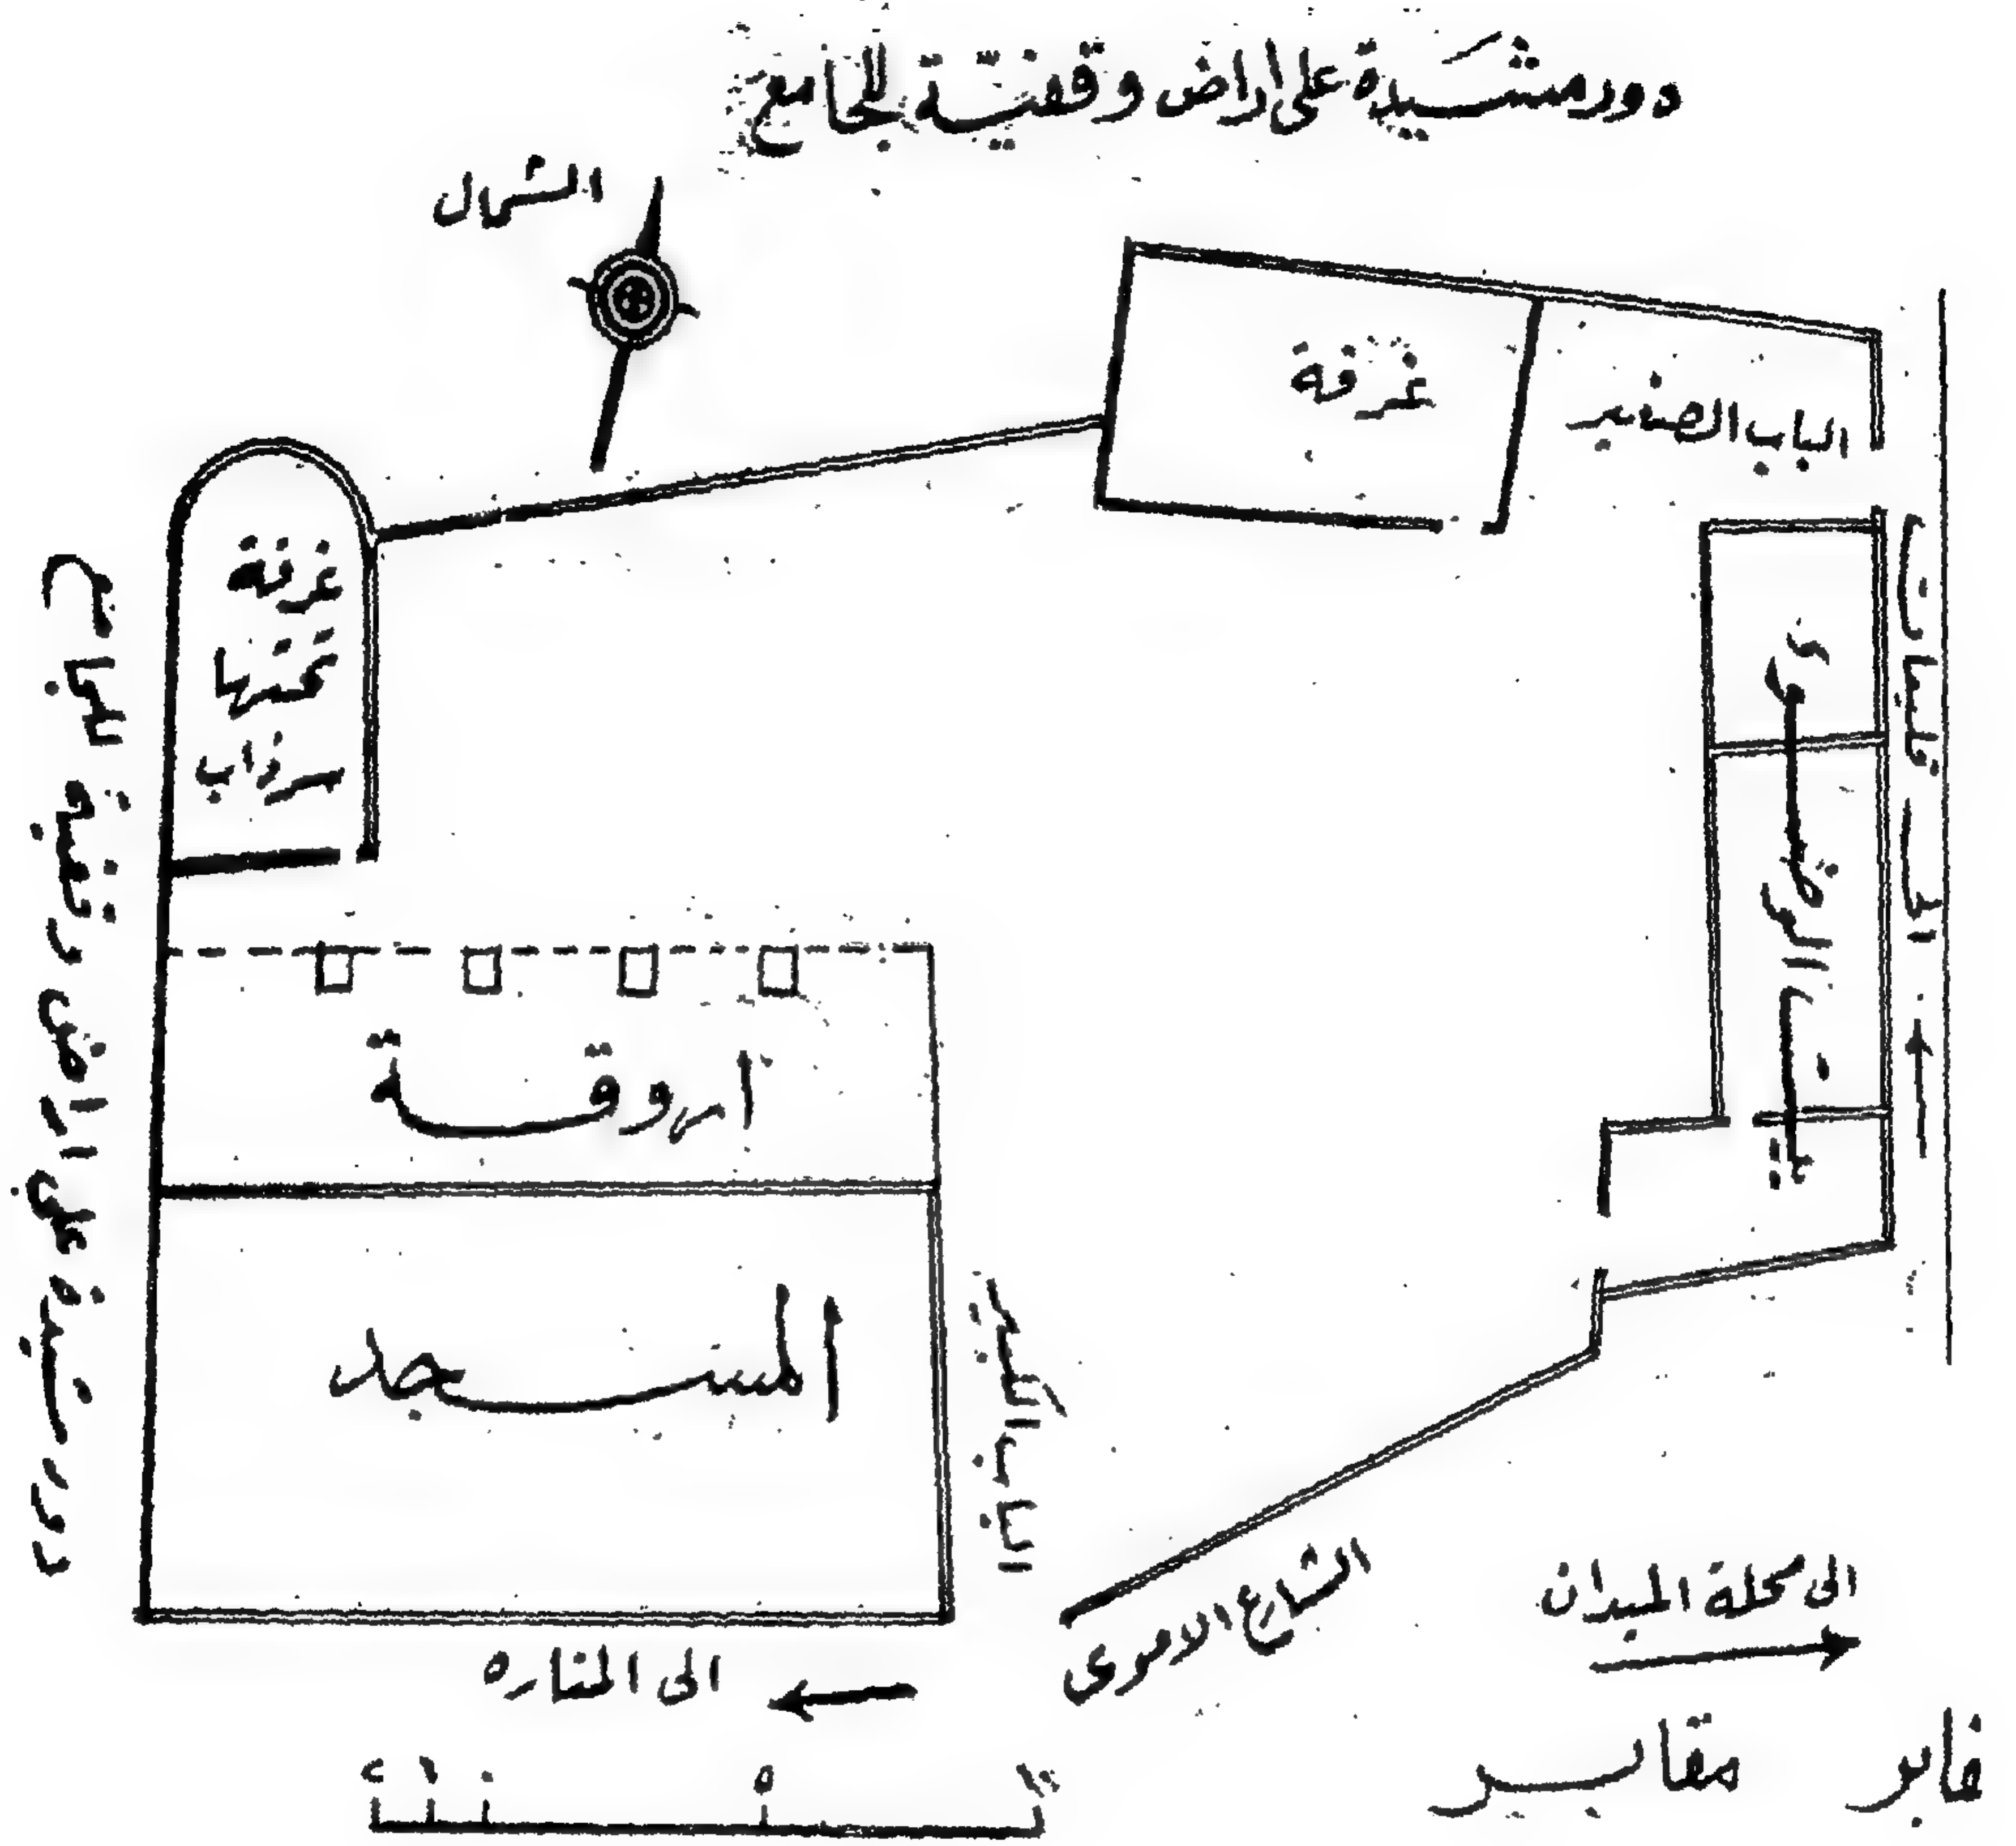 دور مشَيدة على اراض وقفيّة للجامع
الشمال
غرفة
الباب الصغير
غرفة
تحتها
سرداب
دور مشيدة على اراض وقفية للجامع
الى
اروقة
المسجد
الباب الكبير
الشارع الاموي
الى محلة الميدان
الى المناره
مقابر
٢ ١ ٠ ٥ ١٠